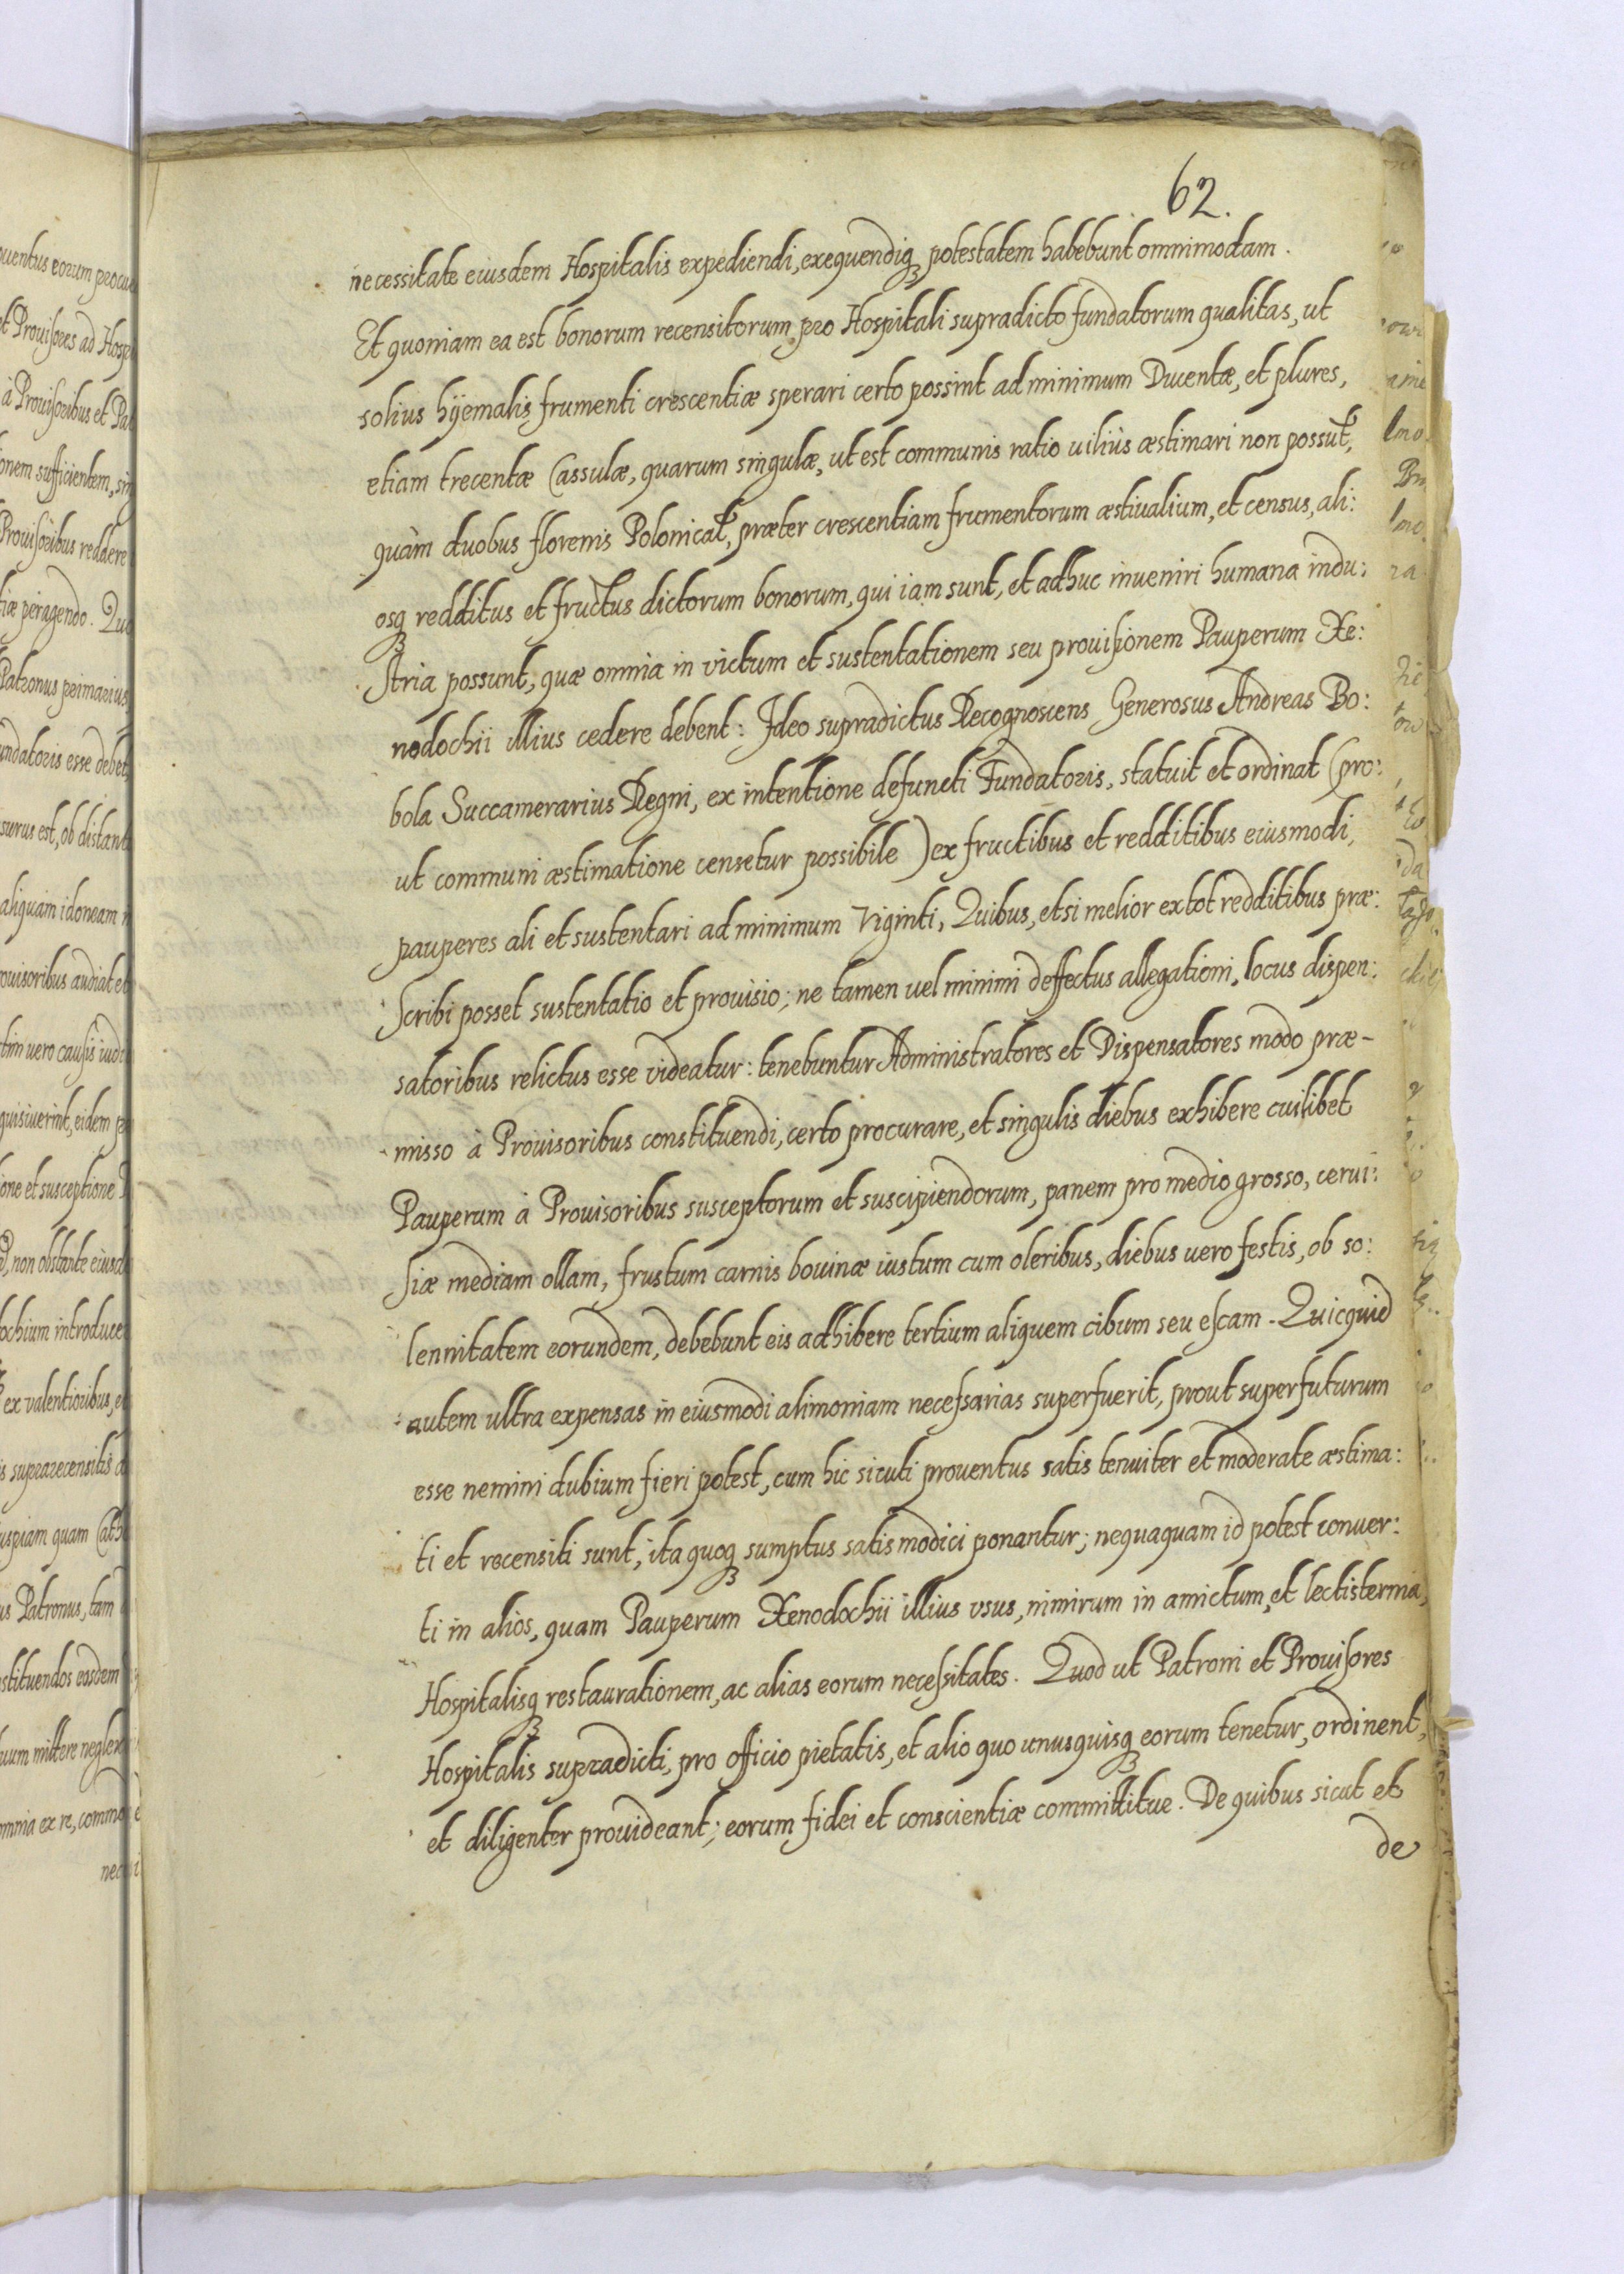 62.
necessitate eiusdem Hospitalis expediendi, exequendiq₃ potestatem habebunt omnimodam.
Et quoniam ea est bonorum recensitorum pro Hospitali supradicto fundatorum qualitas, ut
solius hÿemalis frumenti crescentiæ sperari certo possint ad minimum Ducentæ, et plures,
etiam trecentæ Cassulæ, quarum singulæ, ut est communis ratio uiliùs æstimari non possūt,
quàm duobus florenis Polonical̃, præter crescentiam frumentorum æstiualium, et census, ali:
osq₃ redditus et fructus dictorum bonorum, qui iam sunt, et adhuc inueniri humana indu:
stria possunt, quæ omnia in victum et sustentationem seu prouisionem Pauperum Xe:
nodochii illius cedere debent: Ideo supradictus Recognoscens Generosus Andreas Bo:
bola Succamerarius Regni, ex intentione defuncti Fundatoris, statuit et ordinat (pro:
ut communi æstimatione censetur possibile) ex fructibus et redditibus eiusmodi,
pauperes ali et sustentari ad minimum viginti, Quibus, etsi melior ex tot redditibus præ:
scribi posset sustentatio et prouisio; ne tamen uel minimi deffectus allegationi, locus dispen:
satoribus relictus esse videatur: tenebuntur Administratores et Dispensatores modo præ-
misso à Prouisoribus constituendi, certo procurare, et singulis diebus exhibere cuilibet
Pauperum à Prouisoribus susceptorum et suscipiendorum, panem pro medio grosso, cerui:
siæ mediam ollam, frustum carnis bouinæ iustum cum oleribus, diebus uero festis, ob so:
lennitatem eorundem, debebunt eis adhibere tertium aliquem cibum seu escam. Quicquid
autem ultra expensas in eiusmodi alimoniam necessarias superfuerit, prout superfuturum
esse nemini dubium fieri potest, cum hic sicuti prouentus satis tenuiter et moderate æstima:
ti et recensiti sunt, ita quoq₃ sumptus satis modici ponantur; nequaquam id potest conuer:
ti in alios, quam Pauperum Xenodochii illius vsus, nimirum in amictum, et lectisternia,
Hospitalisq₃ restaurationem, ac alias eorum necessitates. Quod ut Patroni et Prouisores
Hospitalis supradicti, pro officio pietatis, et alio quo unusquisq₃ eorum tenetur, ordinent,
et diligenter prouideant; eorum fidei et conscientiæ committitur. De quibus sicut et
de